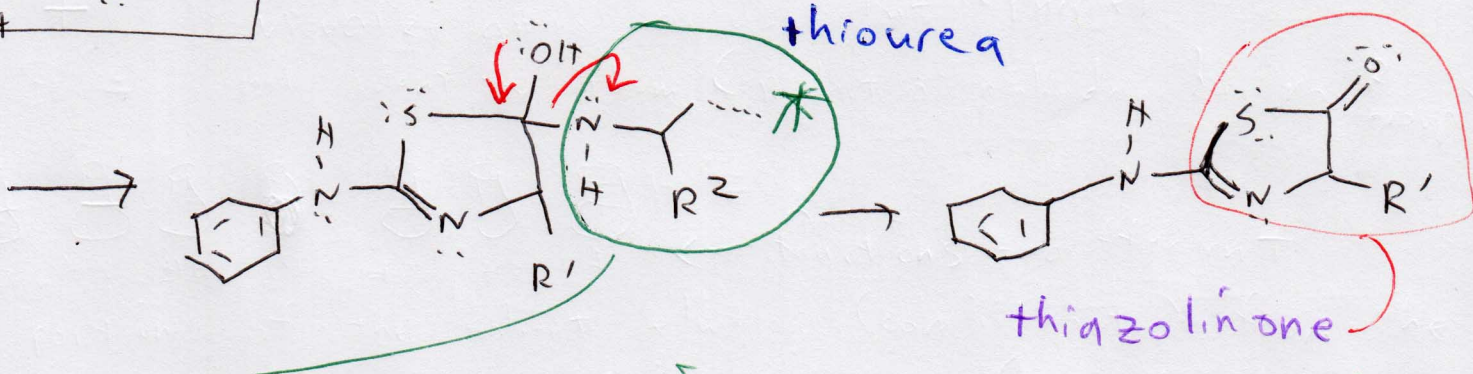 thiourea
:ÖH
:S̈
N̈
H
N
H
R²
N
R'
H
N
S
O
N
R'
thiazolinone